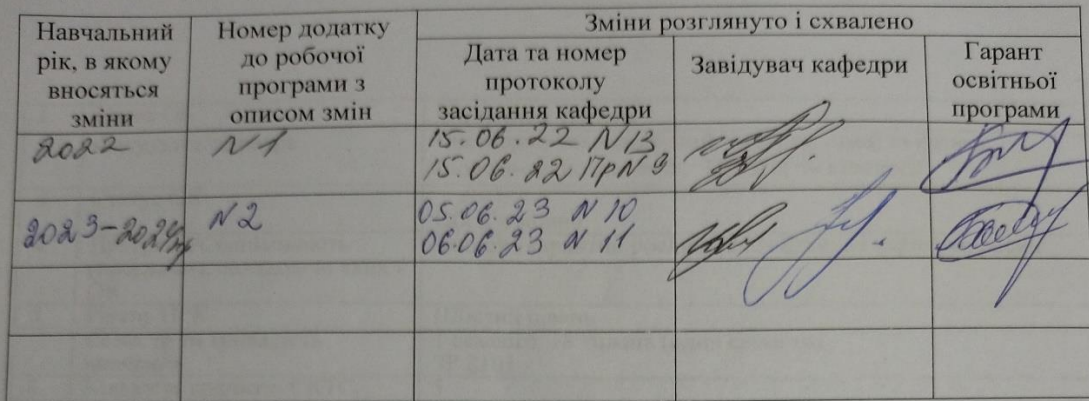 Навчальний
рік, в якому
вносяться
зміни
Номер додатку
до робочої
програми з
описом змін
Зміни розглянуто і схвалено
Дата та номер
протоколу
засідання кафедри
Завідувач кафедри
Гарант
освітньої
програми
2022
N1
15.06.22 N13
15.06.22 Пр N 9
2023-2024
N2
05.06.23 N 10
06.06.23 N 11